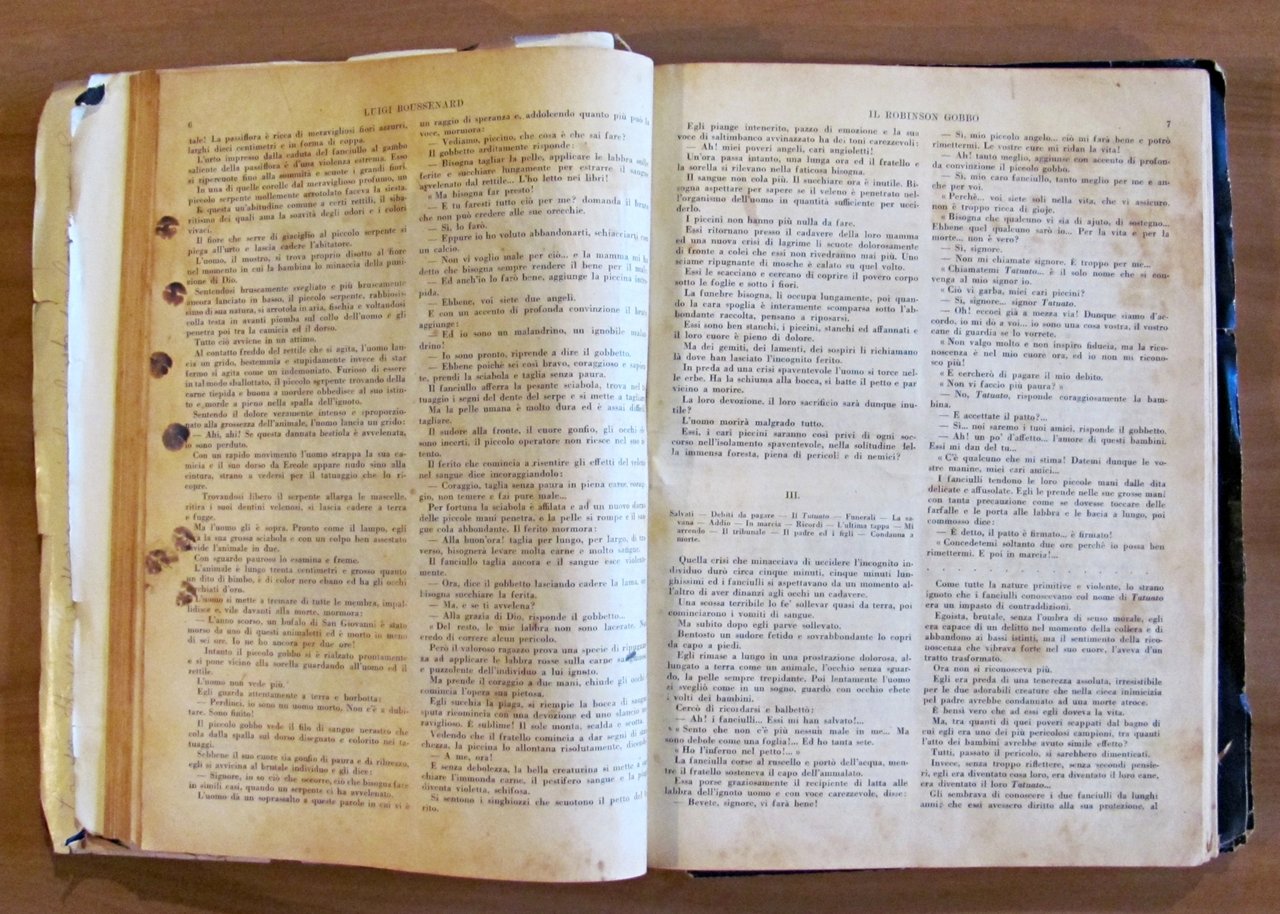 6
LUIGI BOUSSENARD
tale! La passiflora è ricca di meravigliosi fiori azzurri,
larghi dieci centimetri e in forma di coppa.
L'urto impresso dalla caduta del fanciullo al gambo
saliente della passiflora è d'una violenza estrema. Esso
si ripercuote fino alla sommità e scuote i grandi fiori.
In una di quelle corolle dal meraviglioso profumo, un
piccolo serpente mollemente arrotolato faceva la siesta.
E questa un'abitudine comune a certi rettili, il sibaritismo
dei quali ama la soavità degli odori e i colori
vivaci.
Il fiore che serve di giaciglio al piccolo serpente si
piega all'urto e lascia cadere l'abitatore.
L'uomo, il mostro, si trova proprio disotto al fiore
nel momento in cui la bambina lo minaccia della punizione
di Dio.
Sentendosi bruscamente svegliato e più bruscamente
ancora lanciato in basso, il piccolo serpente, rabbiosissimo
di sua natura, si arrotola in aria, fischia e voltandosi
colla testa in avanti piomba sul collo dell'uomo e gli
penetra poi tra la camicia ed il dorso.
Tutto ciò avviene in un attimo.
Al contatto freddo del rettile che si agita, l'uomo lancia
un grido, bestemmia e stupidamente invece di star
fermo si agita come un indemoniato. Furioso di essere
in tal modo sballottato, il piccolo serpente trovando della
carne tiepida e buona a mordere obbedisce al suo istinto
e morde a pieno nella spalla dell'ignoto.
Sentendo il dolore veramente intenso e sproporzionato
alla grossezza dell'animale, l'uomo lancia un grido:
— Ahi, ahi! Se questa dannata bestiola è avvelenata,
io sono perduto.
Con un rapido movimento l'uomo strappa la sua camicia
e il suo dorso da Ercole appare nudo sino alla
cintura, strano a vedersi per il tatuaggio che lo ricopre.
Trovandosi libero il serpente allarga le mascelle,
ritira i suoi dentini velenosi, si lascia cadere a terra
e fugge.
Ma l'uomo gli è sopra. Pronto come il lampo, egli
ha la sua grossa sciabola e con un colpo ben assestato
divide l'animale in due.
Con sguardo pauroso lo esamina e freme.
L'animale è lungo trenta centimetri e grosso quanto
un dito di bimbo, è di color nero ebano ed ha gli occhi
cerchiati d'oro.
L'uomo si mette a tremare di tutte le membra, impallidisce
e, vile davanti alla morte, mormora:
— L'anno scorso, un bufalo di San Giovanni è stato
morso da uno di questi animaletti ed è morto in meno
di sei ore. Io ne ho ancora per due ore!
Intanto il piccolo gobbo si è rialzato prontamente
e si pone vicino alla sorella guardando all'uomo ed il
rettile.
L'uomo non vede più.
Egli guarda attentamente a terra e borbotta:
— Perdinci, io sono un uomo morto. Non c'è a dubitare.
Sono finito!
Il piccolo gobbo vede il filo di sangue nerastro che
cola dalla spalla sul dorso disegnato e colorito nei tatuaggi.
Sebbene il suo cuore sia gonfio di paura e di ribrezzo,
egli si avvicina al brutale individuo e gli dice:
— Signore, io so ciò che occorre, ciò che bisogna fare
in simili casi, quando un serpente ci ha avvelenato.
L'uomo dà un soprassalto a queste parole in cui vi è
un raggio di speranza e, addolcendo quanto più può la
voce, mormora:
— Vediamo, piccino, che cosa è che sai fare?
Il gobbetto arditamente risponde:
— Bisogna tagliar la pelle, applicare le labbra sulle
ferite e succhiare lungamente per estrarre il sangue
avvelenato dal rettile... L'ho letto nei libri!
« Ma bisogna far presto!
— E tu faresti tutto ciò per me? domanda il bruto
che non può credere alle sue orecchie.
— Sì, lo farò.
— Eppure io ho voluto abbandonarti, schiacciarti con
un calcio.
— Non vi voglio male per ciò... e la mamma mi ha
detto che bisogna sempre rendere il bene per il male.
— Ed anch'io lo farò bene, aggiunge la piccina intrepida.
— Ebbene, voi siete due angeli.
E con un accento di profonda convinzione il bruto
aggiunge:
— Ed io sono un malandrino, un ignobile malandrino!
— Io sono pronto, riprende a dire il gobbetto.
— Ebbene poichè sei così bravo, coraggioso e sapiente,
prendi la sciabola e taglia senza paura.
Il fanciullo afferra la pesante sciabola, trova nel tatuaggio
i segni del dente del serpe e si mette a tagliare.
Ma la pelle umana è molto dura ed è assai difficile
tagliare.
Il sudore alla fronte, il cuore gonfio, gli occhi
sono incerti, il piccolo operatore non riesce nel suo intento.
Il ferito che comincia a risentire gli effetti del veleno
nel sangue dice incoraggiandolo:
— Coraggio, taglia senza paura in piena carne, coraggio,
non temere e fai pure male...
Per fortuna la sciabola è affilata e ad un nuovo sforzo
delle piccole mani penetra, e la pelle si rompe e il sangue
cola abbondante. Il ferito mormora:
— Alla buon'ora! taglia per lungo, per largo, di traverso,
bisognerà levare molta carne e molto sangue.
Il fanciullo taglia ancora e il sangue esce violentemente.
— Ora, dice il gobbetto lasciando cadere la lama,
bisogna succhiare la ferita.
— Ma, e se ti avvelena?
— Alla grazia di Dio, risponde il gobbetto...
« Del resto, le mie labbra non sono lacerate. Non
credo di correre alcun pericolo.
Però il valoroso ragazzo prova una specie di ripugnanza
ad applicare le labbra rosse sulla carne sanguinosa
e puzzolente dell'individuo a lui ignoto.
Ma prende il coraggio a due mani, chiude gli occhi e
comincia l'opera sua pietosa.
Egli succhia la piaga, si riempie la bocca di sangue,
sputa ricomincia con una devozione ed uno slancio meraviglioso.
È sublime! Il sole monta, scalda e scotta.
Vedendo che il fratello comincia a dar segni di stanchezza,
la piccina lo allontana risolutamente, dicendo:
— A me, ora!
E senza debolezza, la bella creaturina si mette a succhiare
l'immonda carne, il pestifero sangue e la piaga
diventa violetta, schifosa.
Si sentono i singhiozzi che scuotono il petto del ferito.
IL ROBINSON GOBBO
7
Egli piange intenerito, pazzo di emozione e la sua
voce di saltimbanco avvinazzato ha dei toni carezzevoli:
— Ah! miei poveri angeli, cari angioletti!
Un'ora passa intanto, una lunga ora ed il fratello e
la sorella si rilevano nella faticosa bisogna.
Il sangue non cola più. Il succhiare ora è inutile. Bisogna
aspettare per sapere se il veleno è penetrato nell'organismo
dell'uomo in quantità sufficiente per ucciderlo.
I piccini non hanno più nulla da fare.
Essi ritornano presso il cadavere della loro mamma
ed una nuova crisi di lagrime li scuote dolorosamente
di fronte a colei che essi non rivedranno mai più. Uno
sciame ripugnante di mosche è calato su quel volto.
Essi le scacciano e cercano di coprire il povero corpo
sotto le foglie e sotto i fiori.
La funebre bisogna, li occupa lungamente, poi quando
la cara spoglia è interamente scomparsa sotto l'abbondante
raccolta, pensano a riposarsi.
Essi sono ben stanchi, i piccini, stanchi ed affannati e
il loro cuore è pieno di dolore.
Ma dei gemiti, dei lamenti, dei sospiri li richiamano
là dove han lasciato l'incognito ferito.
In preda ad una crisi spaventevole l'uomo si torce nelle
erbe. Ha la schiuma alla bocca, si batte il petto e par
vicino a morire.
La loro devozione, il loro sacrificio sarà dunque inutile?
L'uomo morirà malgrado tutto.
Essi, i cari piccini saranno così privi di ogni soccorso
nell'isolamento spaventevole, nella solitudine della
immensa foresta, piena di pericoli e di nemici?
III.
Salvati — Debiti da pagare — Il Tatuato — Funerali — La savana
— Addio — In marcia — Ricordi — L'ultima tappa — Mi
arrendo — Il tribunale — Il padre ed i figli — Condanna a
morte.
Quella crisi che minacciava di uccidere l'incognito individuo
durò circa cinque minuti, cinque minuti lunghissimi
ed i fanciulli si aspettavano da un momento all'altro
di aver dinanzi agli occhi un cadavere.
Una scossa terribile lo fe' sollevar quasi da terra, poi
cominciarono i vomiti di sangue.
Ma subito dopo egli parve sollevato.
Bentosto un sudore fetido e sovrabbondante lo coprì
da capo a piedi.
Egli rimase a lungo in una prostrazione dolorosa, allungato
a terra come un animale, l'occhio senza sguardo,
la pelle sempre trepidante. Poi lentamente l'uomo
si svegliò come in un sogno, guardò con occhio ebete
i volti dei bambini.
Cercò di ricordarsi e balbettò:
— Ah! i fanciulli... Essi mi han salvato!...
« Sento che non c'è più nessun male in me... Ma
sono debole come una foglia!... Ed ho tanta sete.
« Ho l'inferno nel petto!... »
La fanciulla corse al ruscello e portò dell'acqua, mentre
il fratello sosteneva il capo dell'ammalato.
Essa porse graziosamente il recipiente di latta alle
labbra dell'ignoto uomo e con voce carezzevole, disse:
— Bevete, signore, vi farà bene!
— Sì, mio piccolo angelo... ciò mi farà bene e potrò
rimettermi. Le vostre cure mi ridan la vita!
— Ah! tanto meglio, aggiunse con accento di profonda
convinzione il piccolo gobbo.
— Sì, mio caro fanciullo, tanto meglio per me e anche
per voi.
« Perchè... voi siete soli nella vita, che vi assicuro.
non è troppo ricca di gioje.
« Bisogna che qualcuno vi sia di ajuto, di sostegno...
Ebbene quel qualcuno sarò io... Per la vita e per la
morte... non è vero?
— Sì, signore.
— Non mi chiamate signore. È troppo per me...
« Chiamatemi Tatuato... è il solo nome che si convenga
al mio signor io.
« Ciò vi garba, miei cari piccini?
— Sì, signore... signor Tatuato.
— Oh! eccoci già a mezza via! Dunque siamo d'accordo,
io mi dò a voi... io sono una cosa vostra, il vostro
cane di guardia se lo vorrete.
« Non valgo molto e non inspiro fiducia, ma la riconoscenza
è nel mio cuore ora, ed io non mi riconosco
più!
« E cercherò di pagare il mio debito.
« Non vi faccio più paura? »
— No, Tatuato, risponde coraggiosamente la bambina.
— E accettate il patto?...
— Sì... noi saremo i tuoi amici, risponde il gobbetto.
— Ah! un po' d'affetto... l'amore di questi bambini.
Essi mi dan del tu...
« C'è qualcuno che mi stima! Datemi dunque le vostre
manine, miei cari amici...
I fanciulli tendono le loro piccole mani dalle dita
delicate e affusolate. Egli le prende nelle sue grosse mani
con tanta precauzione come se dovesse toccare delle
farfalle e le porta alle labbra e le bacia a lungo, poi
commosso dice:
— È detto, il patto è firmato... è firmato!
« Concedetemi soltanto due ore perchè io possa ben
rimettermi. E poi in marcia!...
Come tutte le nature primitive e violente, lo strano
ignoto che i fanciulli conoscevano col nome di Tatuato
era un impasto di contraddizioni.
Egoista, brutale, senza l'ombra di senso morale, egli
era capace di un delitto nel momento della collera e di
abbandono ai bassi istinti, ma il sentimento della riconoscenza
che vibrava forte nel suo cuore, l'aveva d'un
tratto trasformato.
Ora non si riconosceva più.
Egli era preda di una tenerezza assoluta, irresistibile
per le due adorabili creature che nella cieca inimicizia
pel padre avrebbe condannato ad una morte atroce.
È bensì vero che ad essi egli doveva la vita.
Ma, tra quanti di quei poveri scappati dal bagno di
cui egli era uno dei più pericolosi campioni, tra quanti
l'atto dei bambini avrebbe avuto simile effetto?
Tutti, passato il pericolo, si sarebbero dimenticati.
Invece, senza troppo riflettere, senza secondi pensieri,
egli era diventato cosa loro, era diventato il loro cane,
era diventato il loro Tatuato...
Gli sembrava di conoscere i due fanciulli da lunghi
anni; che essi avessero diritto alla sua protezione, al